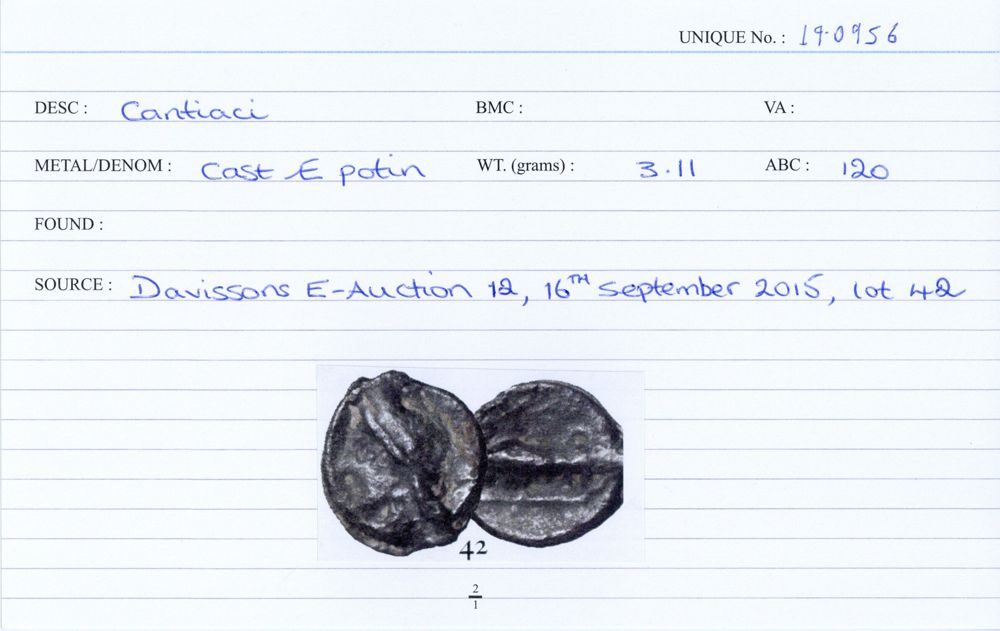 UNIQUE No. : 19.0956
DESC : Cantiaci BMC : VA :
METAL/DENOM : Cast Æ potin WT. (grams) : 3.11 ABC : 120
FOUND :
SOURCE : Davissons E-Auction 12, 16TH September 2015, lot 42
42
2
1